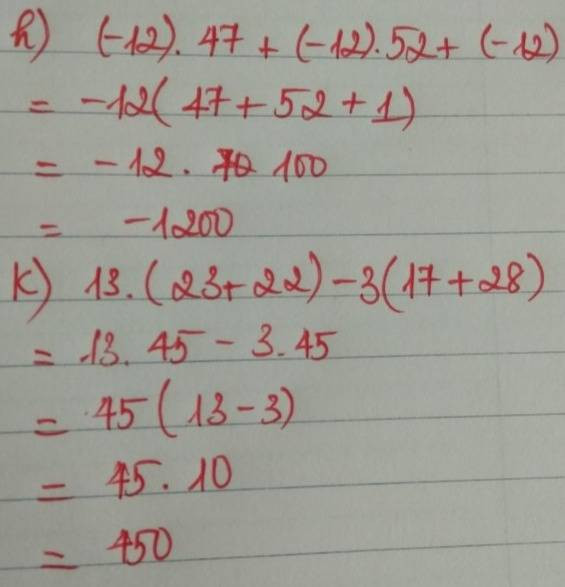 h) (-12). 47 + (-12). 52 + (-12)
= -12( 47 + 52 + 1)
= -12 . 100
= -1200
k) 13.(23+22) - 3(17+28)
= 13. 45 - 3.45
= 45(13-3)
= 45. 10
= 450